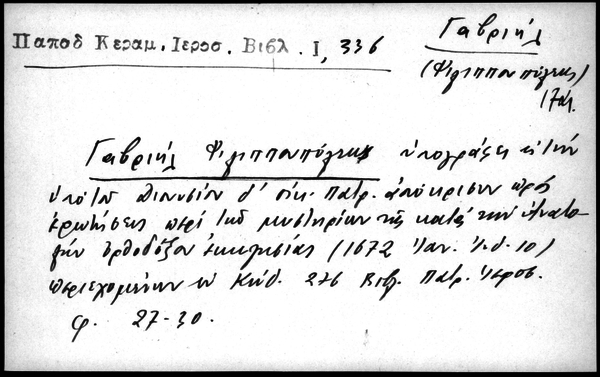 Παπαδ Κεραμ. Ιεροσ. Βιβλ. Ι, 336
Γαβριήλ
(Φιλιππουπόλεως)
17ος αἰ.
Γαβριήλ Φιλιππουπόλεως ὑπογράφει εἰς τήν
ὑπό τοῦ Διονυσίου Δ' οἰκ. Πατρ. ἀπόκρισιν πρός
ἐρωτήσεις περί τῶν μυστηρίων τῆς κατά τήν Ἀνατο-
λήν ὀρθοδόξου ἐκκλησίας (1672 Ἰαν. Ἰνδ. 10)
περιεχομένην ἐν Κώδ. 276 Βιβλ. Πατρ. Ἱεροσ.
φ. 27-30.